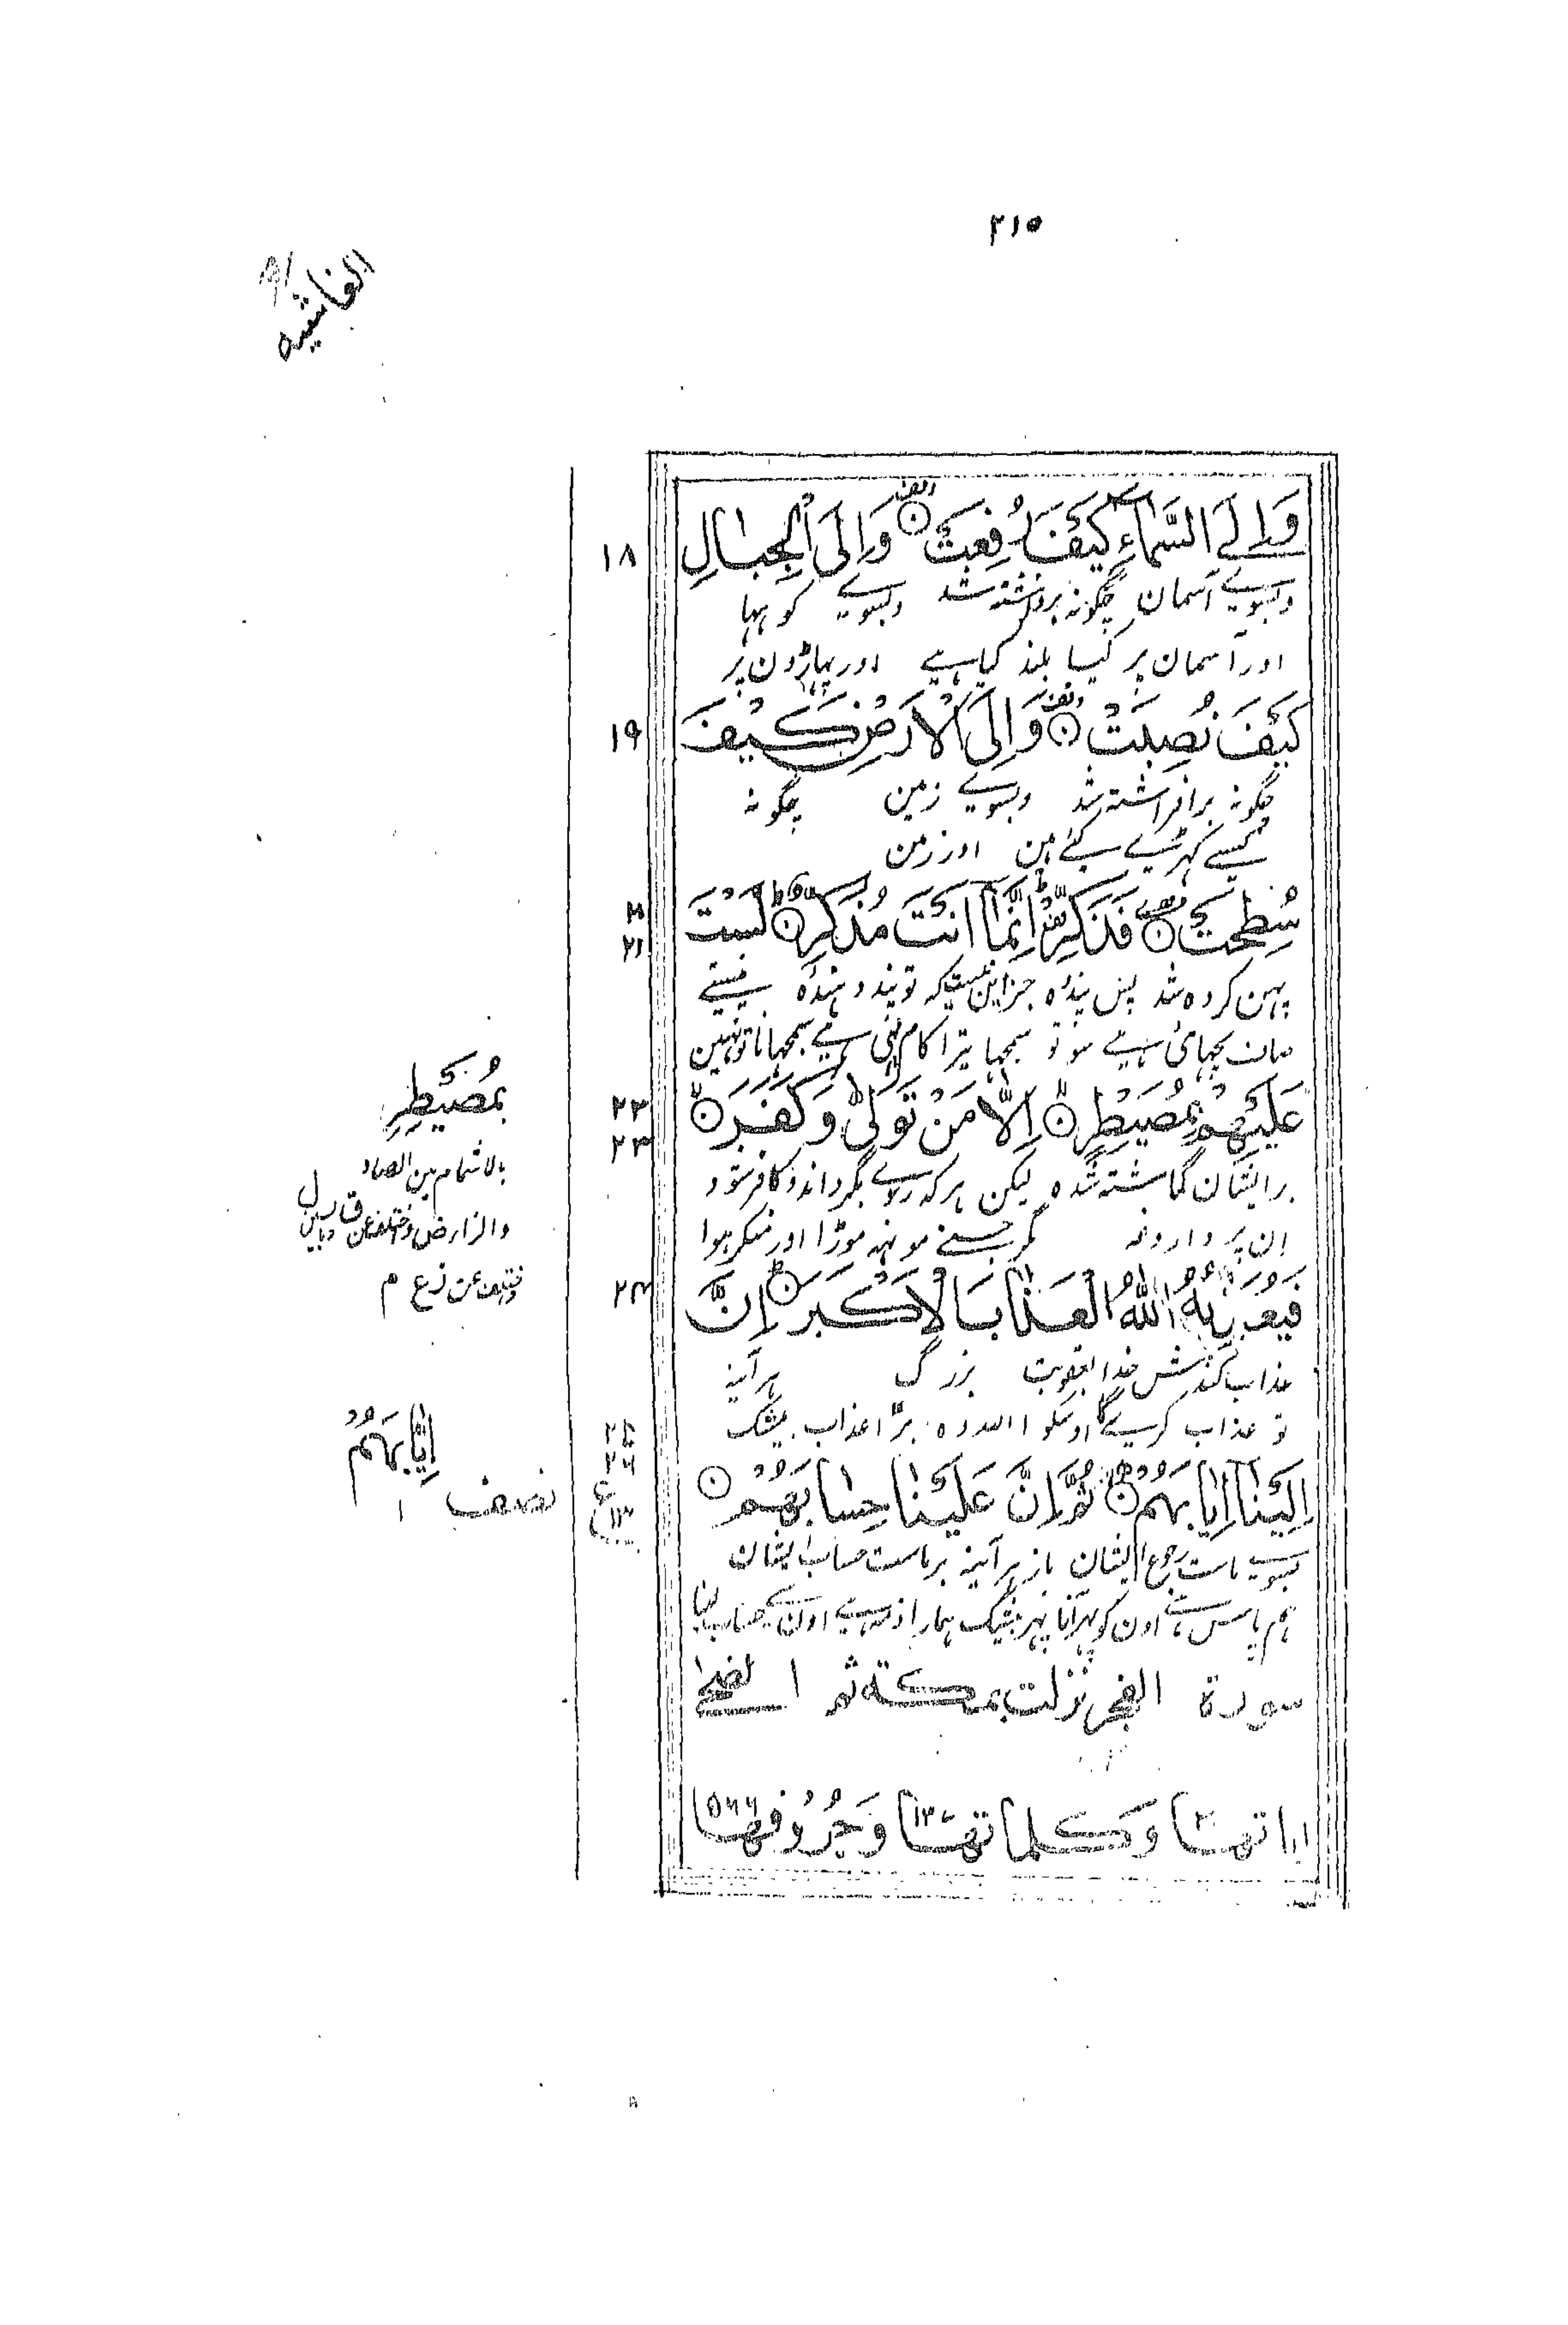 ٢١٥
الغاشیه
وَاِلَے السَّمَآءِ كَيْفَ رُفِعَتْ وَاِلَى الْجِبَالِ
١٨
وبسوے آسمان چگونه برداشته شد وبسوے کوہہا
اور آسمان پر کیسا بلند کیا ہے اور پہاڑون پر
كَيْفَ نُصِبَتْ وَاِلَى الْاَرْضِ كَيْفَ
١٩
چگونه برافراشته شد وبسوے زمین چگونه
کیسے کہڑے کئے ہین اور زمین
سُطِحَتْ فَذَكِّرْ اِنَّمَآ اَنْتَ مُذَكِّرٌ لَسْتَ
٢٠
٢١
پہن کرده شد پس پندده جز این نیست که تو پند دہنده نیستے
صاف بچہائی ہے سو تو سمجہا تیرا کام یہی ہے سمجہانا تو نہین
عَلَيْهِمْ بِمُصَيْطِرٍ اِلَّا مَنْ تَوَلّٰى وَكَفَرَ
٢٢
٢٣
بر ایشان گماشته شده لیکن ہرکه روے بگرداند و کافر شود
ان پر داروغه مگر جسنے مونہه موڑا اور منکر ہوا
فَيُعَذِّبُهُ اللّٰهُ الْعَذَابَ الْاَكْبَرَ اِنَّ
٢٤
عذاب کندش خدا بعقوبت بزرگ ہر آئینه
تو عذاب کریگا اوسکو الله وه بڑا عذاب بیشک
اِلَيْنَآ اِيَابَهُمْ ثُمَّ اِنَّ عَلَيْنَا حِسَابَهُمْ
٢٥
٢٦
ع
١٣
بسوے ماست رجوع ایشان باز ہر آئینه بر ماست حساب ایشان
ہم پاس ہے اون کو پہر آنا پہر بیشک ہمارا ذمہ ہے اون سے حساب لینا
سورة الفجر نزلت بمكة ثم الضحى
وَكلماتها ١٣٧ وَحُرُوفها ٥٦٦
بِمُصَيْطِرٍ
بالاشمام بين الصاد
والزا
اِيَّابَهُمْ
نصف ١